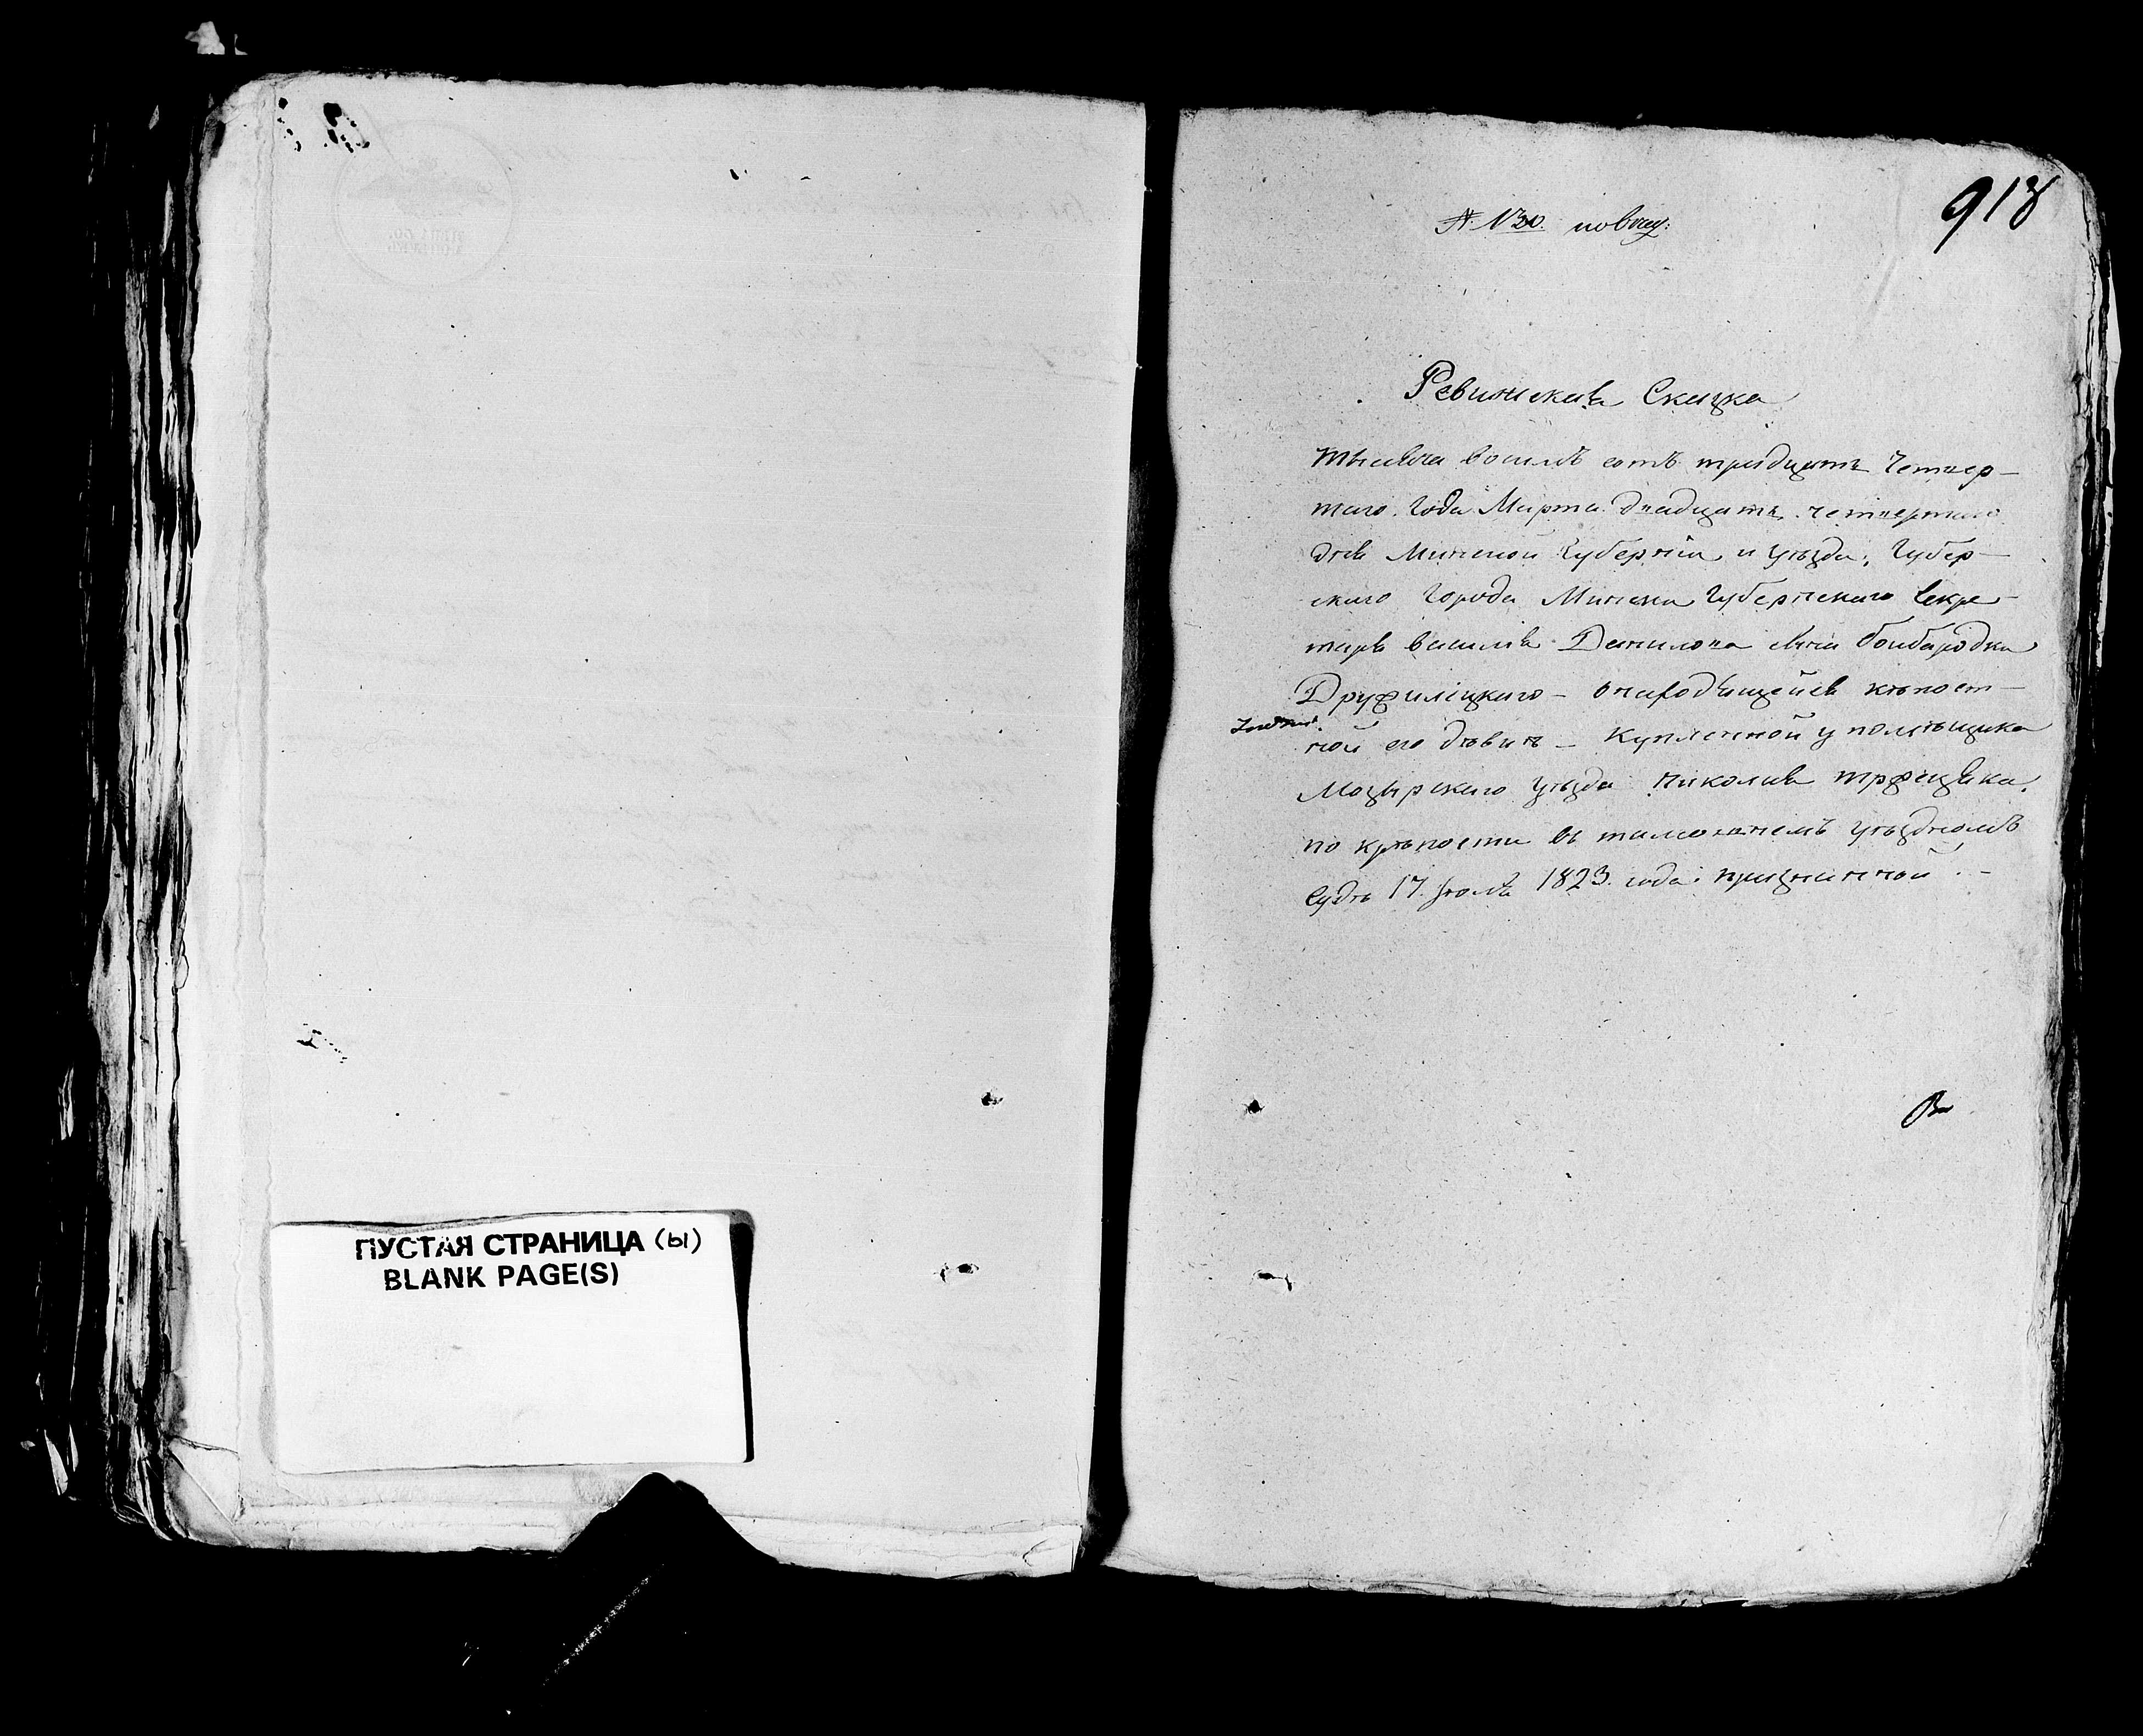 ПУСТАЯ СТРАНИЦА (ы)
BLANK PAGE(S)
913
Ревижская Сказка
тысяча восемь сотъ тридцать четвер-
таго года Марта двадцать четвертаго
дня Минской Губерніи и уѣзда, Губер-
скаго Города Минска Губернскаго Секре-
таря василя Данилова сына
– находящейся кѣпост-
ной его дѣвкѣ – купленной у помѣщика
Мозырскаго уѣзда Николая
по крѣпости въ уѣздномъ
Судѣ 17 Іюля 1823 года признанной –